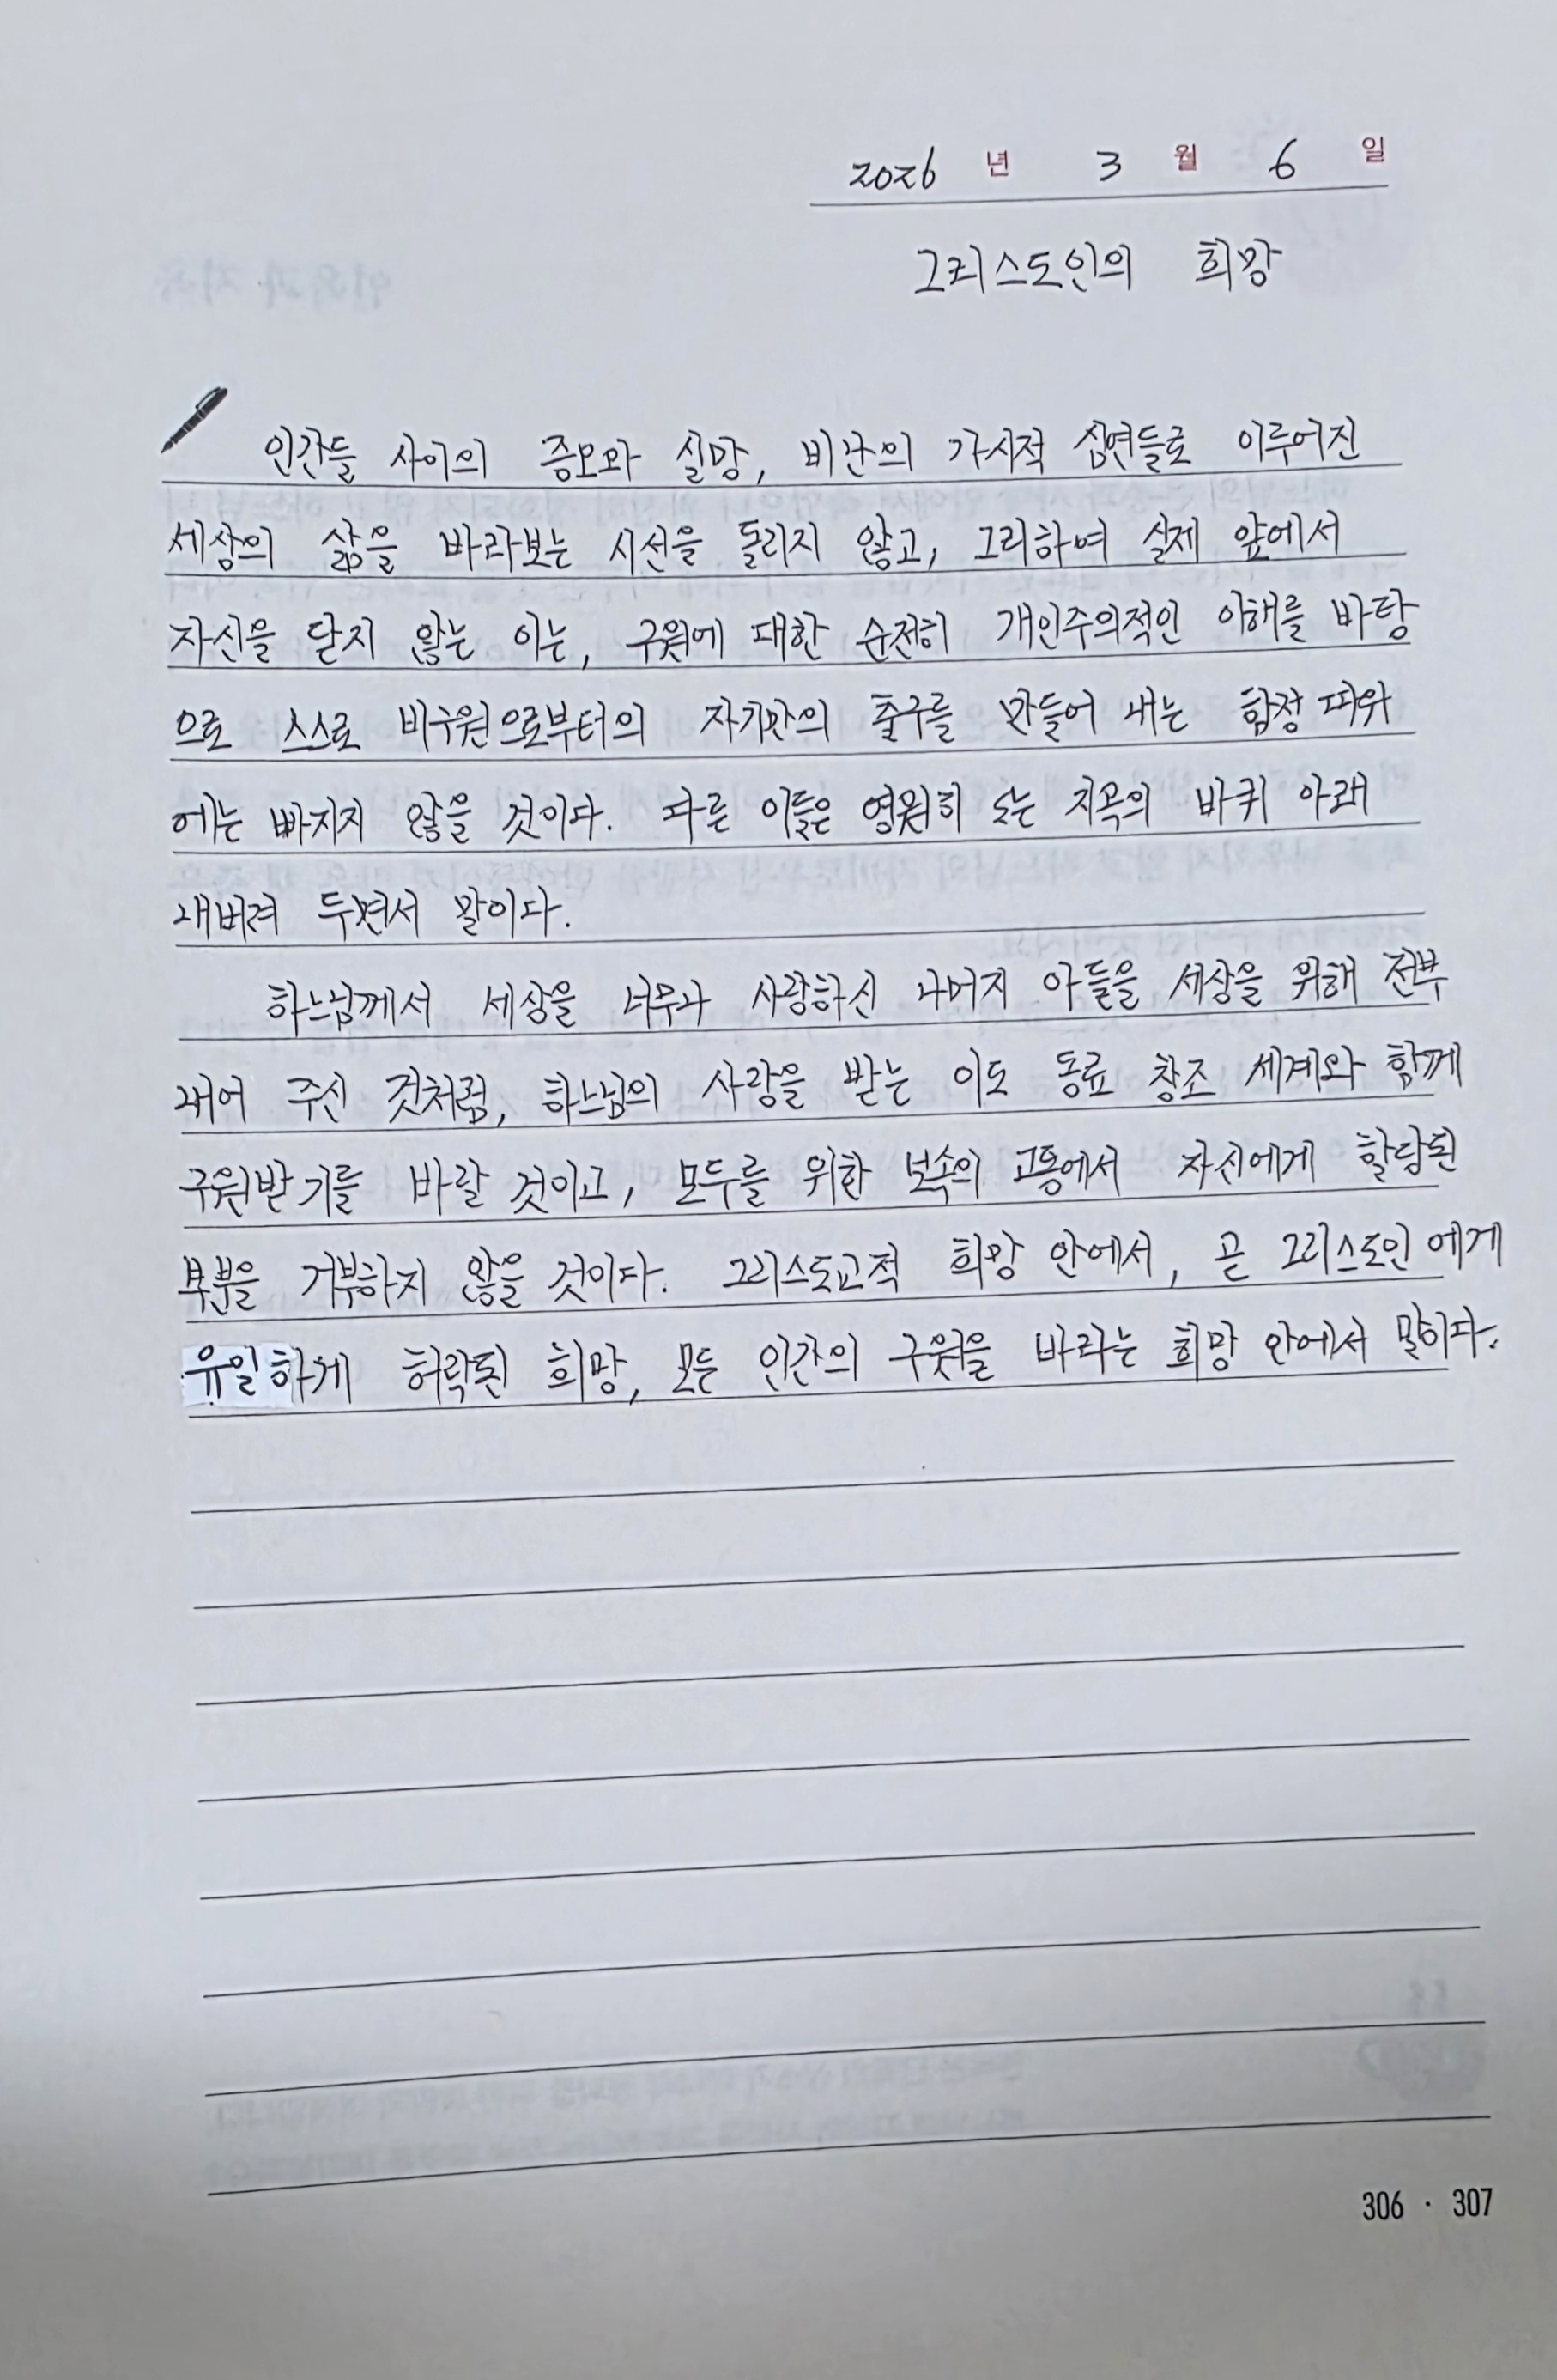 2026 년 3 월 6 일
그리스도인의 희망
인간들 사이의 증오와 실망, 비난의 가시적 심연들로 이루어진
세상의 삶을 바라보는 시선을 돌리지 않고, 그리하여 실제 앞에서
자신을 닫지 않는 이는, 구원에 대한 순전히 개인주의적인 이해를 바탕
으로 스스로 비구원으로부터의 자기만의 출구를 만들어 내는 함정 따위
에는 빠지지 않을 것이다. 다른 이들은 영원히 도는 지옥의 바퀴 아래
내버려 두면서 말이다.
하느님께서 세상을 너무나 사랑하신 나머지 아들을 세상을 위해 전부
내어 주신 것처럼, 하느님의 사랑을 받는 이도 동료 창조 세계와 함께
구원받기를 바랄 것이고, 모두를 위한 보속의 고통에서 자신에게 할당된
부분을 거부하지 않을 것이다. 그리스도교적 희망 안에서, 곧 그리스도인에게
유일하게 허락된 희망, 모든 인간의 구원을 바라는 희망 안에서 말이다.
306 · 307